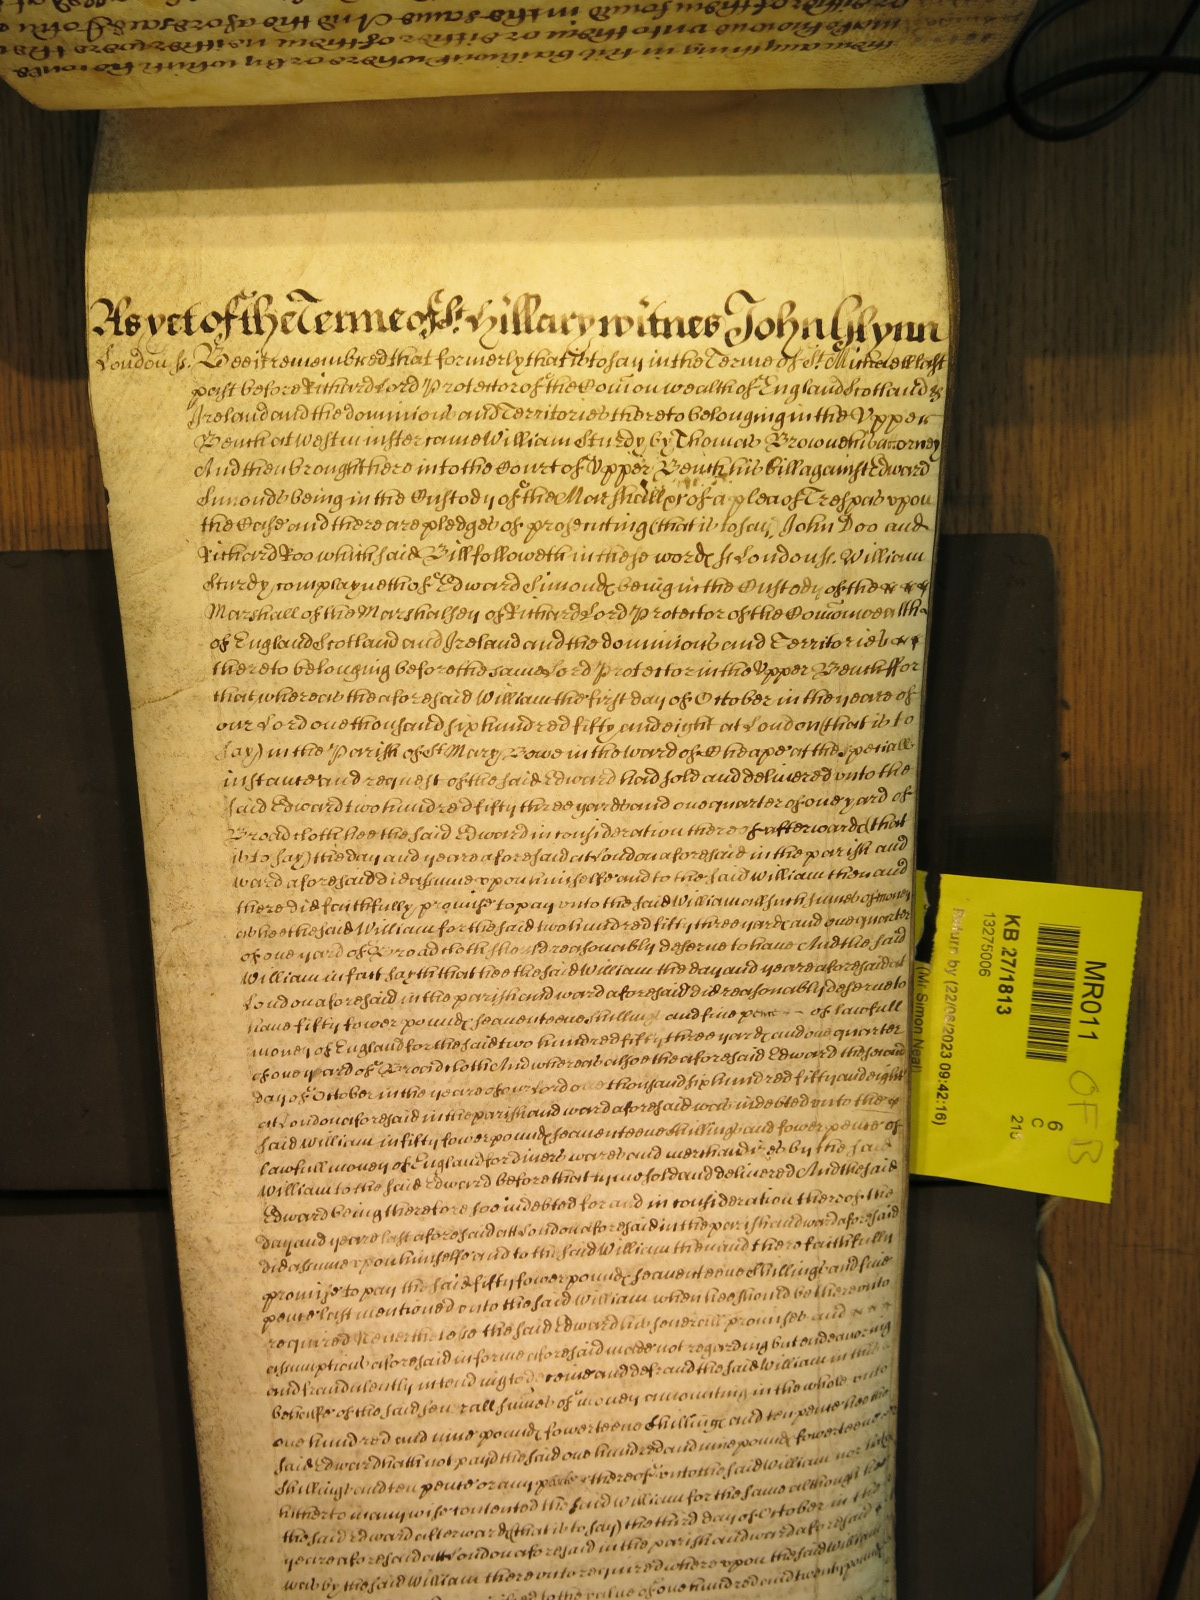 As yet of the Terme of St. Hillary witnes John Glynn
London ss. Bee it remembred that formerly that is to say in the Terme of St. Michaell last
past before Richard Lord Protector of the Comon wealth of England Scotland &
Ireland and the dominions and Territories thereto belonging in the Vpper
Bench at Westminster came William Sturdy by Thomas Browne his attorney
And then brought here into the Court of Vpper Bench his bill against Edward
Simonds being in the Custody of the Marshall of a plea of Trespas vpon
the Case and there are pledges of prosecuting (that is to say) John Doo and
Richard Roo which said Bill followeth in these words ss London ss. William
Sturdy complayneth of Edward Simonds being in the Custody of the
Marshall of the Marshalsey of Richard Lord Protector of the Comonwealth
of England Scotland and Ireland and the dominions and Territories
thereto belonging before the same Lord Protector in the Vpper Bench ffor
that whereas the aforesaid William the first day of October in the yeare of
our Lord one thousand six hundred fifty and eight at London (that is to
say) in the Parish of St Mary Bowe in the ward of Cheape at the speciall
instance and request of the said Edward had sold and delivered vnto the
said Edward two hundred fifty three yards and one quarter of one yard of
Broad cloth hee the said Edward in consideration thereof afterwards (that
is to say) the day and yeare aforesaid at London aforesaid in the parish and
ward aforesaid did assume vpon himselfe and to the said William then and
there did faithfully promise to pay vnto the said William all such sumes of money
as hee the said William for the said two hundred fifty three yards and one quarter
of one yard of Broad cloth should reasonably deserve to have And the said
William in fact sayth that hee the said William the day and yeare aforesaid at
London aforesaid in the parish and ward aforesaid did reasonably deserve to
have fifty fower pounds seaventeene shillings and five pence of lawfull
money of England for the said two hundred fifty three yards and one quarter
of one yard of Broad cloth And whereas alsoe the aforesaid Edward the second
day of October in the yeare of our Lord one thousand six hundred fifty and eight
at London aforesaid in the parish and ward aforesaid was indebted vnto the
said William in fifty fower pounds seaventeene shillings and fower pence of
lawfull money of England for divers wares and merchandizes by the said
William to the said Edward before that tyme sold and delivered And the said
Edward being therefore soe indebted for and in consideration thereof the
day and yeare last aforesaid att London aforesaid in the parish and ward aforesaid
did assume vpon himselfe and to the said William then and there faithfully
promise to pay the said fifty fower pounds seaventeene shillings and five
pence last mentioned vnto the said William when hee should be therevnto
required Neverthelesse the said Edward his severall promises and
assumptions aforesaid in forme aforesaid made not regarding but endeavoring
and fraudulently intending to deceive and defraud the said William in this
behalfe of the said severall sumes of money amounting in the whole vnto
one hundred and nine pounds fowerteene shillings and ten pence hee the
said Edward hath not payd the said one hundred and nine pounds fowerteene
shillings and ten pence or any penny thereof vnto the said William nor
hitherto in any wise contented the said William for the same although
the said Edward afterwards (that is to say) the third day of October in the
yeare aforesaid att London aforesaid in the parish and ward aforesaid
was by the said William therevnto required where vpon the said William
to the value of one hundred and twenty pounds
MR011
KB 27/1813
13275006
6
C
215
OFB
Return by (22/08/2023 09:42:16)
(Mr Simon Neal)